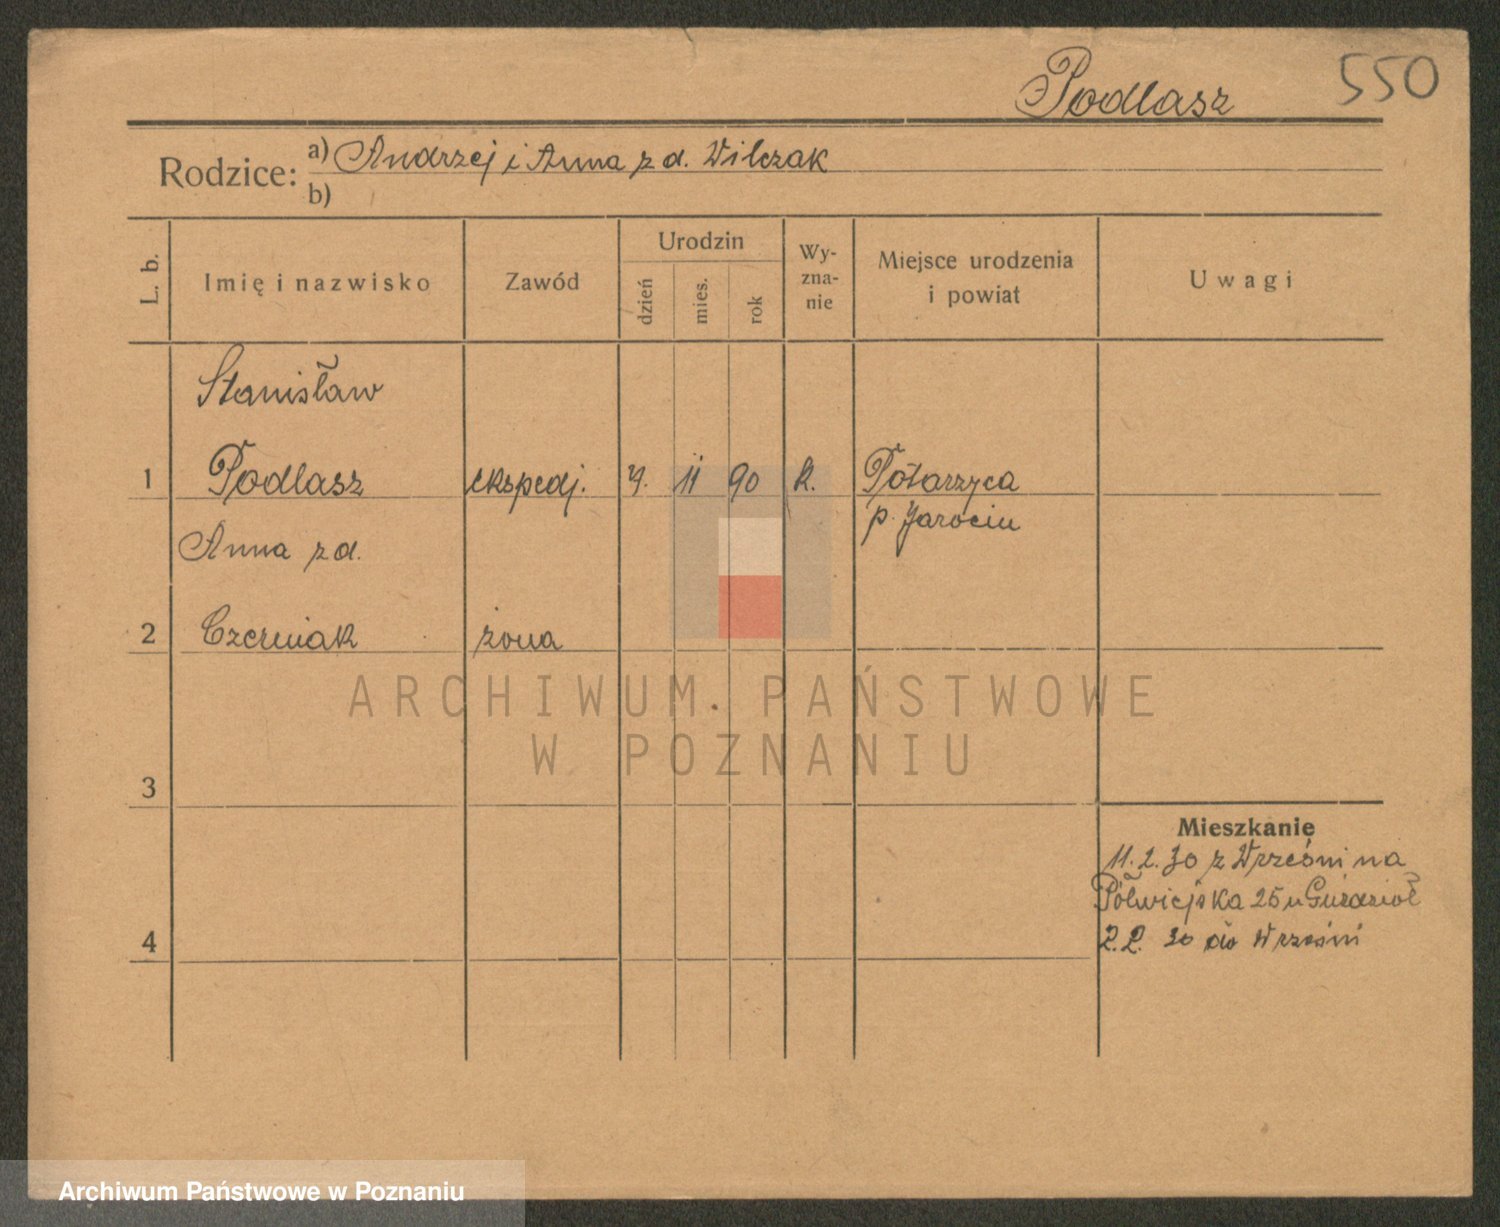 Podlasz 550
Rodzice: a) Andrzej i Anna z d. Wilczak
b)
L. b.
Imię i nazwisko
Zawód
Urodzin
dzień
mies.
rok
Wy-
zna-
nie
Miejsce urodzenia
i powiat
Uwagi
Stanisław
1 Podlasz ekspedj. 11 90 k. Potarzyca
p. Jarocin
Anna z d.
2 Czerniak żona
3
Mieszkanie
11. 2. 30 z Wrześni na
Półwiejska 25 u
4 30 do Wrześni
ARCHIWUM PAŃSTWOWE
W POZNANIU
Archiwum Państwowe w Poznaniu